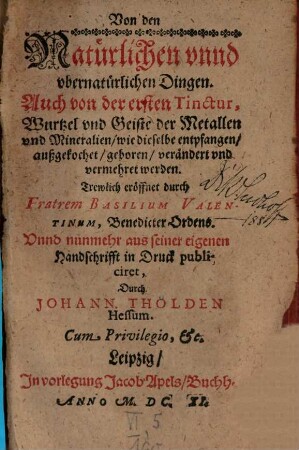 Von den
Natürlichen vnnd
vbernatürlichen Dingen.
Auch von der ersten Tinctur,
Wurtzel vnd Geiste der Metallen
vnd Mineralien/wie dieselbe entpfangen/
außgekochet/geboren/verändert vnd
vermehret werden.
Trewlich eröffnet durch
Fratrem BASILIUM VALEN-
TINUM, Benedicter Ordens.
Vnnd nunmehr aus seiner eigenen
Handschrifft in Druck publi-
ciret,
Durch
JOHANN. THÖLDEN
Hessum.
Cum Privilegio, &c.
Leipzig/
In vorlegung Jacob Apels/Buchh.
ANNO M. DC. XI.